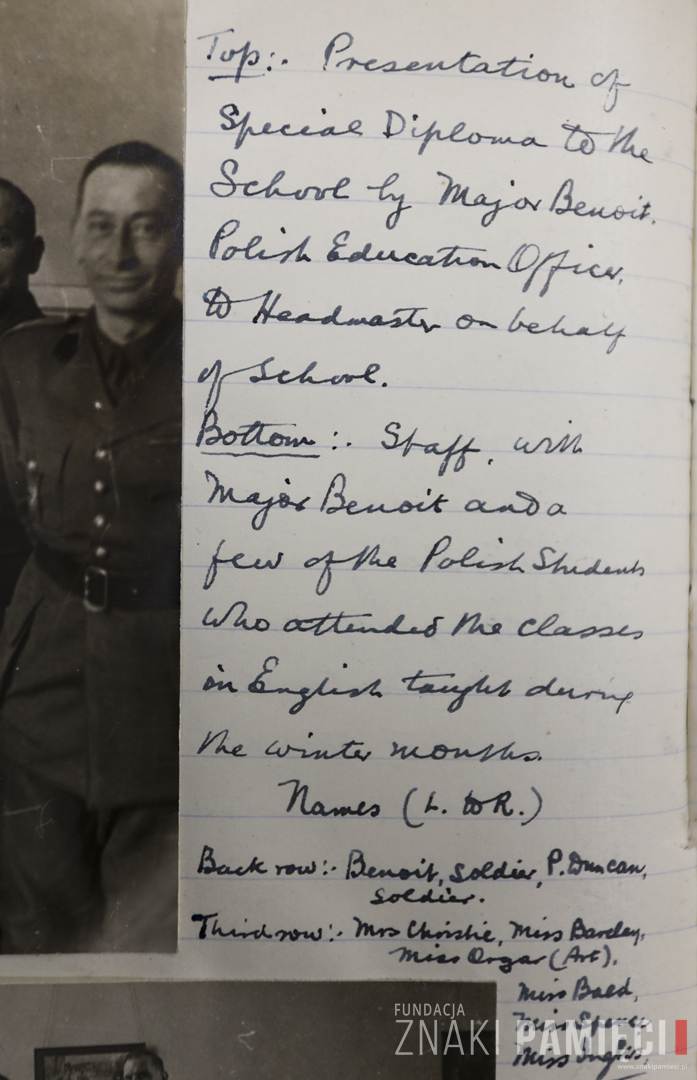 Top:. Presentation of
Special Diploma to the
School by Major Benoit.
Polish Education Officer,
to Headmaster on behalf
of School.
Bottom:. Staff, with
Major Benoit and a
few of the Polish Students
who attended the classes
in English taught during
the winter months.
Names (L. to R.)
Back row:- Benoit, Soldier, P. Duncan,
Soldier.
Third row:- Mrs Christie, Miss Barclay,
Miss Orgar (Art),
Miss Bald,
Miss Spence
Miss Inglis,
FUNDACJA
ZNAKI PAMIĘCI
www.znakipamieci.pl